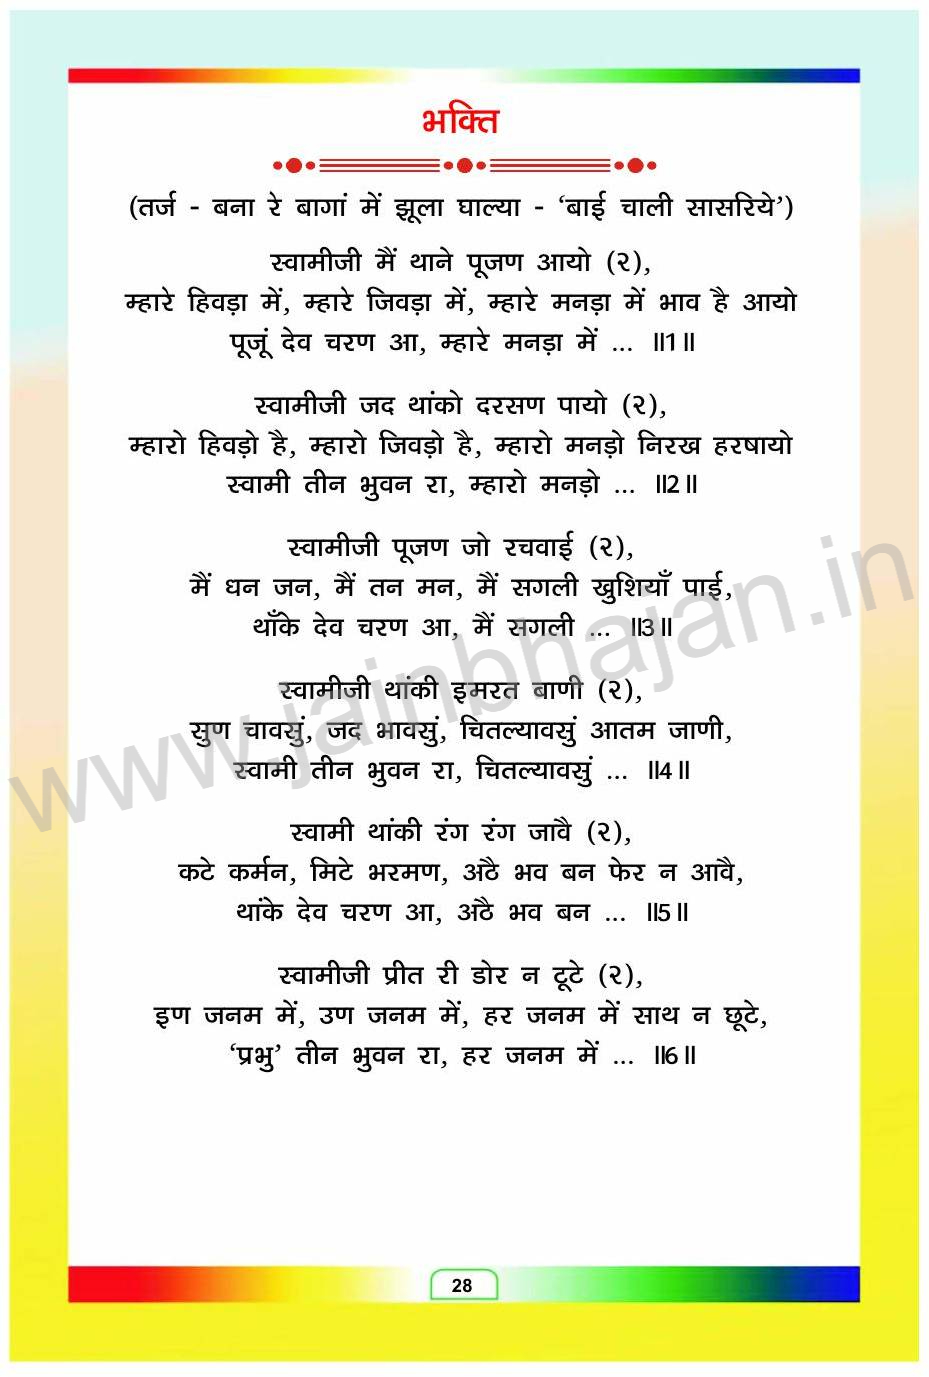 भक्ति
(तर्ज - बना रे बागां में झूला घाल्या - ‘बाई चाली सासरिये’)
स्वामीजी मैं थाने पूजण आयो (२),
म्हारे हिवड़ा में, म्हारे जिवड़ा में, म्हारे मनड़ा में भाव है आयो
पूजूं देव चरण आ, म्हारे मनड़ा में ... ॥1॥
स्वामीजी जद थांको दरसण पायो (२),
म्हारो हिवड़ो है, म्हारो जिवड़ो है, म्हारो मनड़ो निरख हरषायो
स्वामी तीन भुवन रा, म्हारो मनड़ो ... ॥2॥
स्वामीजी पूजण जो रचवाई (२),
मैं धन जन, मैं तन मन, मैं सगली खुशियाँ पाई,
थाँके देव चरण आ, मैं सगली ... ॥3॥
स्वामीजी थांकी इमरत बाणी (२),
सुण चावसुं, जद भावसुं, चितल्यावसुं आतम जाणी,
स्वामी तीन भुवन रा, चितल्यावसुं ... ॥4॥
स्वामी थांकी रंग रंग जावै (२),
कटे कर्मन, मिटे भरमण, अठै भव बन फेर न आवै,
थांके देव चरण आ, अठै भव बन ... ॥5॥
स्वामीजी प्रीत री डोर न टूटे (२),
इण जनम में, उण जनम में, हर जनम में साथ न छूटे,
‘प्रभु’ तीन भुवन रा, हर जनम में ... ॥6॥
www.jainbhajan.in
28